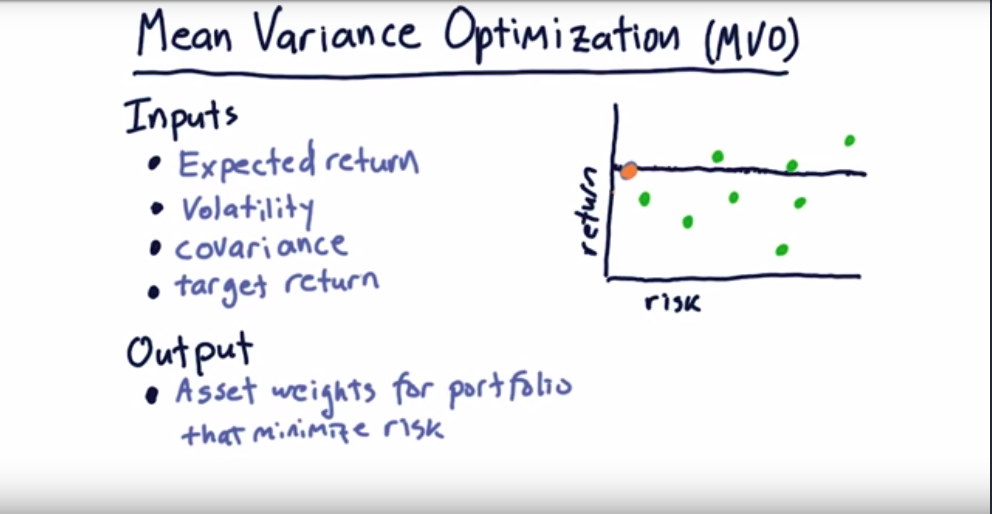 Mean Variance Optimization (MVO)
Inputs
• Expected return
• Volatility
• covariance
• target return
return
risk
Output
• Asset weights for portfolio
that minimize risk